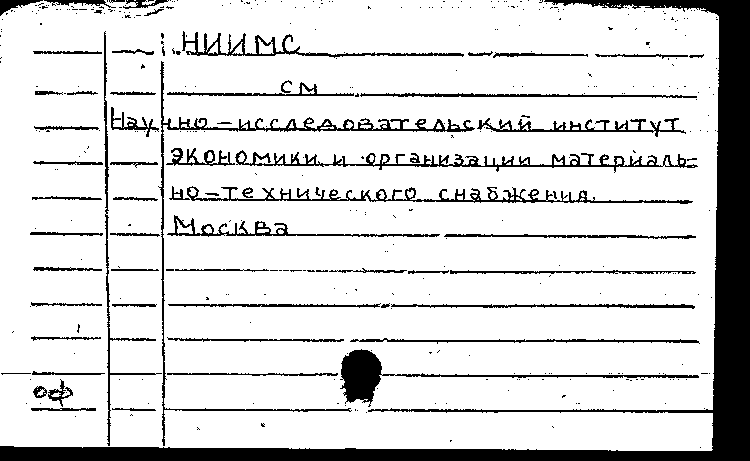 НИИМС
см
Научно-исследовательский институт
экономики и организации материаль-
но-технического снабжения.
Москва
оф